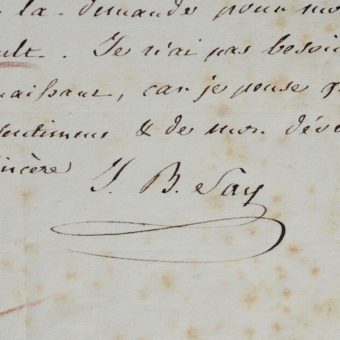 la demande pour mo
ult. Je n'ai pas besoi
naissant, car je pense q
sentimens & de mon dévo
incère
J. B. Say